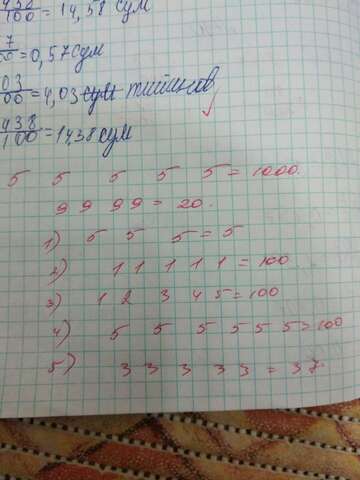 432/100 = 14,58 сум
7/00 = 0,57 сум
03/00 = 4,03 сум тийинов
438/100 = 14,38 сум
5 5 5 5 5 = 1000.
9 9 9 9 = 20.
1) 5 5 5 = 5
2) 1 1 1 1 1 = 100
3) 1 2 3 4 5 = 100
4) 5 5 5 5 5 5 = 100
5) 3 3 3 3 3 = 37